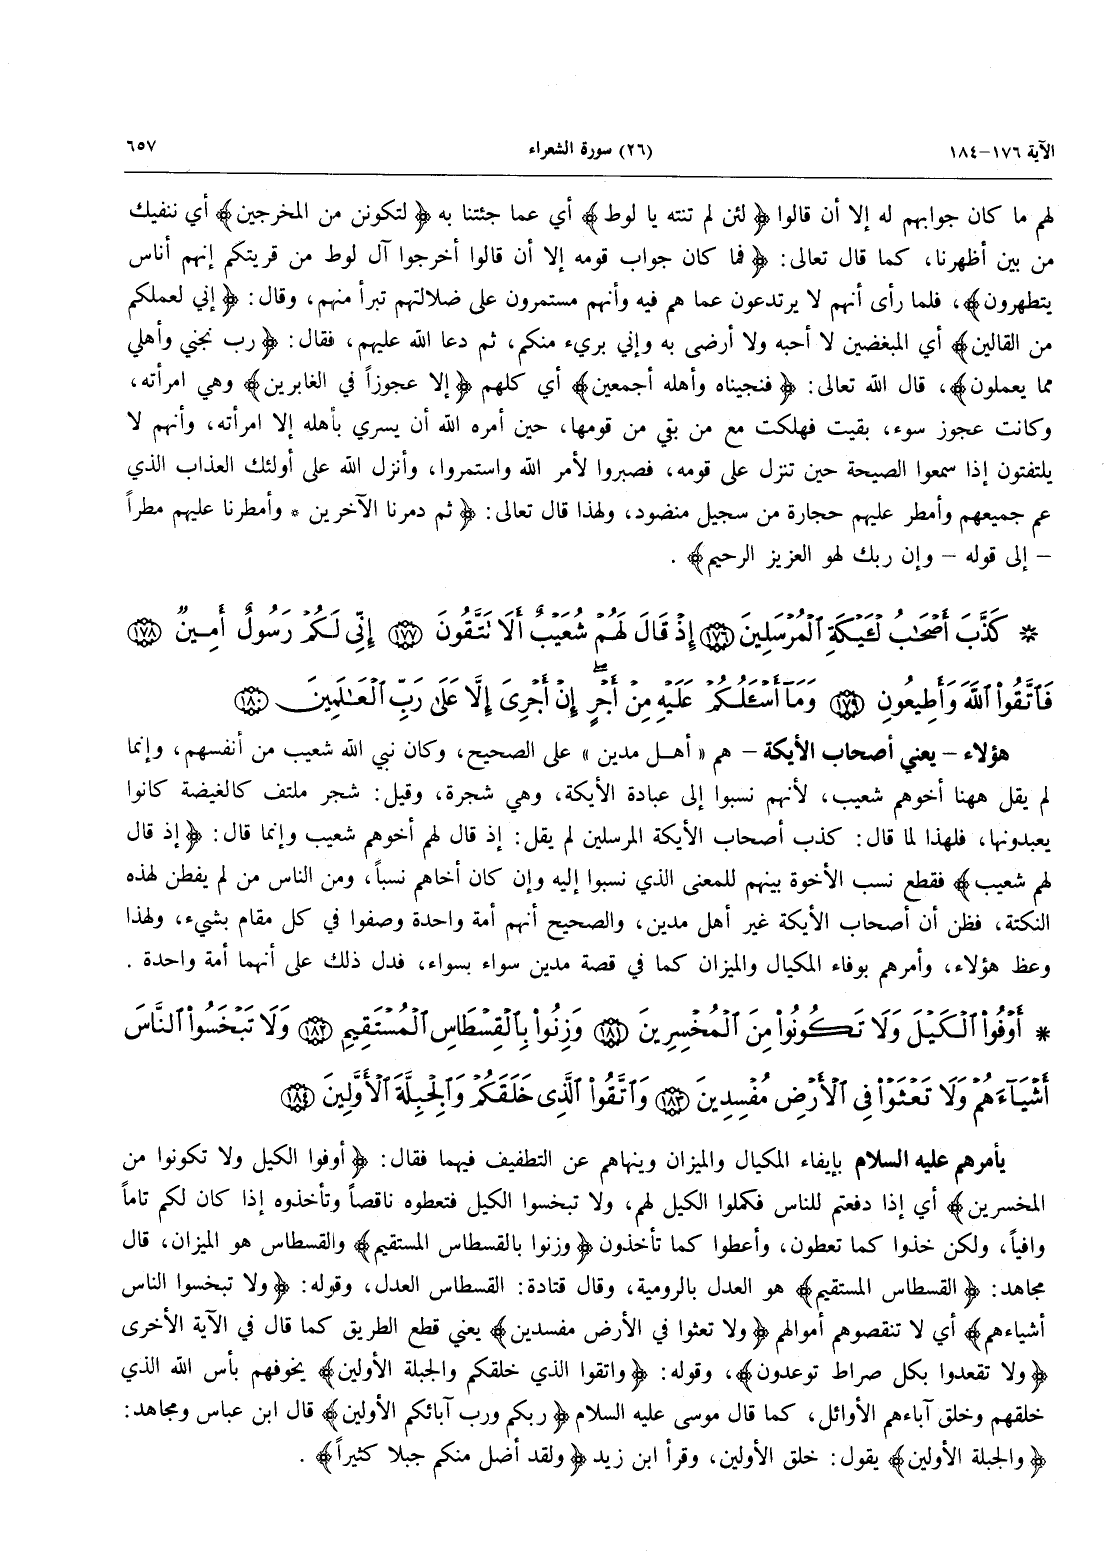 الآية ١٧٦–١٨٤ (٢٦) سورة الشعراء ٦٥٧
لهم ما كان جوابهم له إلا أن قالوا ﴿ لئن لم تنته يا لوط ﴾ أي عما جئتنا به ﴿ لتكونن من المخرجين ﴾ أي ننفيك
من بين أظهرنا، كما قال تعالى: ﴿ فما كان جواب قومه إلا أن قالوا أخرجوا آل لوط من قريتكم إنهم أناس
يتطهرون ﴾، فلما رأى أنهم لا يرتدعون عما هم فيه وأنهم مستمرون على ضلالتهم تبرأ منهم، وقال: ﴿ إني لعملكم
من القالين ﴾ أي المبغضين لا أحبه ولا أرضى به وإني بريء منكم، ثم دعا الله عليهم، فقال: ﴿ رب نجني وأهلي
مما يعملون ﴾، قال الله تعالى: ﴿ فنجيناه وأهله أجمعين ﴾ أي كلهم ﴿ إلا عجوزاً في الغابرين ﴾ وهي امرأته،
وكانت عجوز سوء، بقيت فهلكت مع من بقي من قومها، حين أمره الله أن يسري بأهله إلا امرأته، وأنهم لا
يلتفتون إذا سمعوا الصيحة حين تنزل على قومه، فصبروا لأمر الله واستمروا، وأنزل الله على أولئك العذاب الذي
عم جميعهم وأمطر عليهم حجارة من سجيل منضود، ولهذا قال تعالى: ﴿ ثم دمرنا الآخرين * وأمطرنا عليهم مطراً
– إلى قوله – وإن ربك لهو العزيز الرحيم ﴾ .
* كَذَّبَ أَصْحَٰبُ لْـَٔيْكَةِ ٱلْمُرْسَلِينَ ١٧٦ إِذْ قَالَ لَهُمْ شُعَيْبٌ أَلَا تَتَّقُونَ ١٧٧ إِنِّى لَكُمْ رَسُولٌ أَمِينٌ ١٧٨
فَٱتَّقُوا۟ ٱللَّهَ وَأَطِيعُونِ ١٧٩ وَمَآ أَسْـَٔلُكُمْ عَلَيْهِ مِنْ أَجْرٍ ۖ إِنْ أَجْرِىَ إِلَّا عَلَىٰ رَبِّ ٱلْعَٰلَمِينَ ١٨٠
هؤلاء – يعني أصحاب الأيكة – هم « أهل مدين » على الصحيح، وكان نبي الله شعيب من أنفسهم، وإنما
لم يقل ههنا أخوهم شعيب، لأنهم نسبوا إلى عبادة الأيكة، وهي شجرة، وقيل: شجر ملتف كالغيضة كانوا
يعبدونها، فلهذا لما قال: كذب أصحاب الأيكة المرسلين لم يقل: إذ قال لهم أخوهم شعيب وإنما قال: ﴿ إذ قال
لهم شعيب ﴾ فقطع نسب الأخوة بينهم للمعنى الذي نسبوا إليه وإن كان أخاهم نسباً، ومن الناس من لم يفطن لهذه
النكتة، فظن أن أصحاب الأيكة غير أهل مدين، والصحيح أنهم أمة واحدة وصفوا في كل مقام بشيء، ولهذا
وعظ هؤلاء، وأمرهم بوفاء المكيال والميزان كما في قصة مدين سواء بسواء، فدل ذلك على أنهما أمة واحدة .
* أَوْفُوا۟ ٱلْكَيْلَ وَلَا تَكُونُوا۟ مِنَ ٱلْمُخْسِرِينَ ١٨١ وَزِنُوا۟ بِٱلْقِسْطَاسِ ٱلْمُسْتَقِيمِ ١٨٢ وَلَا تَبْخَسُوا۟ ٱلنَّاسَ
أَشْيَآءَهُمْ وَلَا تَعْثَوْا۟ فِى ٱلْأَرْضِ مُفْسِدِينَ ١٨٣ وَٱتَّقُوا۟ ٱلَّذِى خَلَقَكُمْ وَٱلْجِبِلَّةَ ٱلْأَوَّلِينَ ١٨٤
يأمرهم عليه السلام بإيفاء المكيال والميزان وينهاهم عن التطفيف فيهما فقال: ﴿ أوفوا الكيل ولا تكونوا من
المخسرين ﴾ أي إذا دفعتم للناس فكملوا الكيل لهم، ولا تبخسوا الكيل فتعطوه ناقصاً وتأخذوه إذا كان لكم تاماً
وافياً، ولكن خذوا كما تعطون، وأعطوا كما تأخذون ﴿ وزنوا بالقسطاس المستقيم ﴾ والقسطاس هو الميزان، قال
مجاهد: ﴿ القسطاس المستقيم ﴾ هو العدل بالرومية، وقال قتادة: القسطاس العدل، وقوله: ﴿ ولا تبخسوا الناس
أشياءهم ﴾ أي لا تنقصوهم أموالهم ﴿ ولا تعثوا في الأرض مفسدين ﴾ يعني قطع الطريق كما قال في الآية الأخرى
﴿ ولا تقعدوا بكل صراط توعدون ﴾، وقوله: ﴿ واتقوا الذي خلقكم والجبلة الأولين ﴾ يخوفهم بأس الله الذي
خلقهم وخلق آباءهم الأوائل، كما قال موسى عليه السلام ﴿ ربكم ورب آبائكم الأولين ﴾ قال ابن عباس ومجاهد:
﴿ والجبلة الأولين ﴾ يقول: خلق الأولين، وقرأ ابن زيد ﴿ ولقد أضل منكم جبلا كثيراً ﴾ .